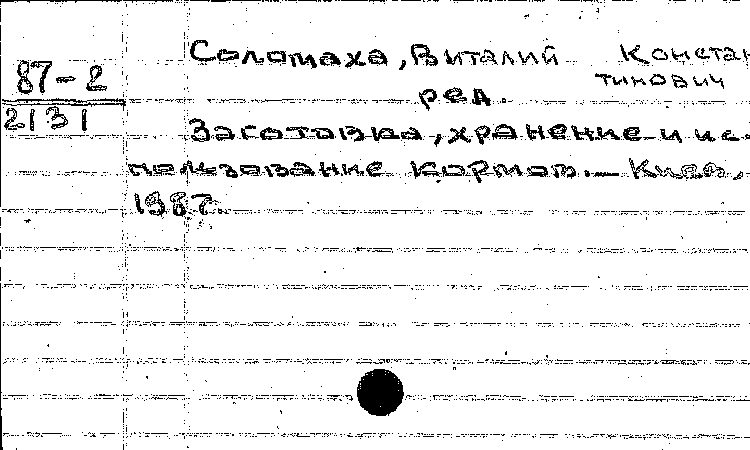 Соломаха, Виталий Констан
тинович
87-2
ред.
2131
Заготовка, хранение и ис-
пользование кормов. — Киев,
1987.